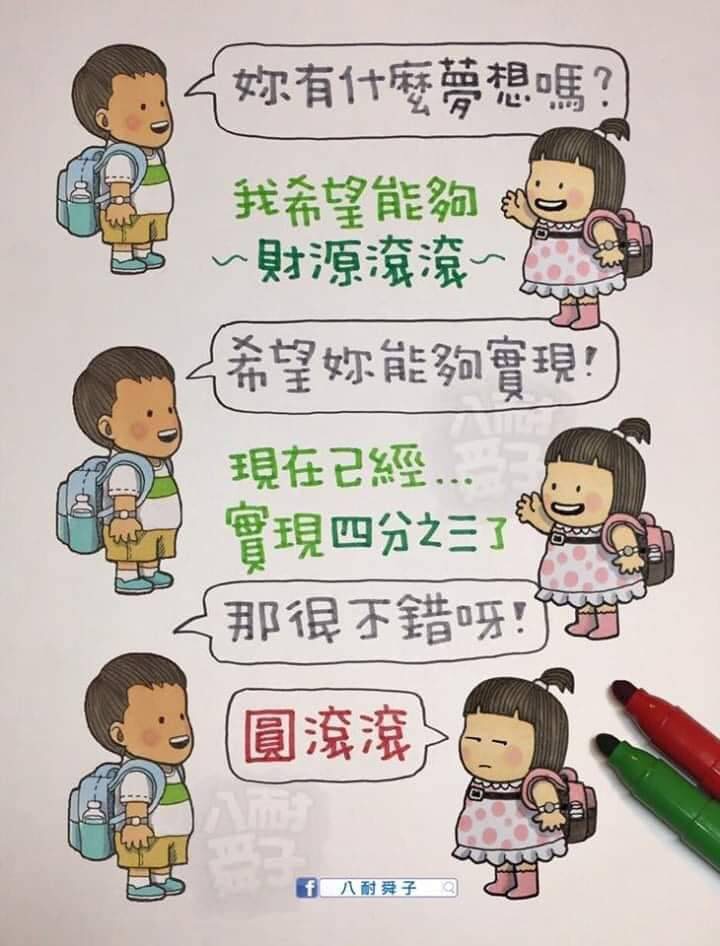 妳有什麼夢想嗎?
我希望能夠
~財源滾滾~
希望妳能夠實現!
現在已經...
實現四分之三了
那很不錯呀!
圓滾滾
八耐舜子
八耐舜子
f 八耐舜子